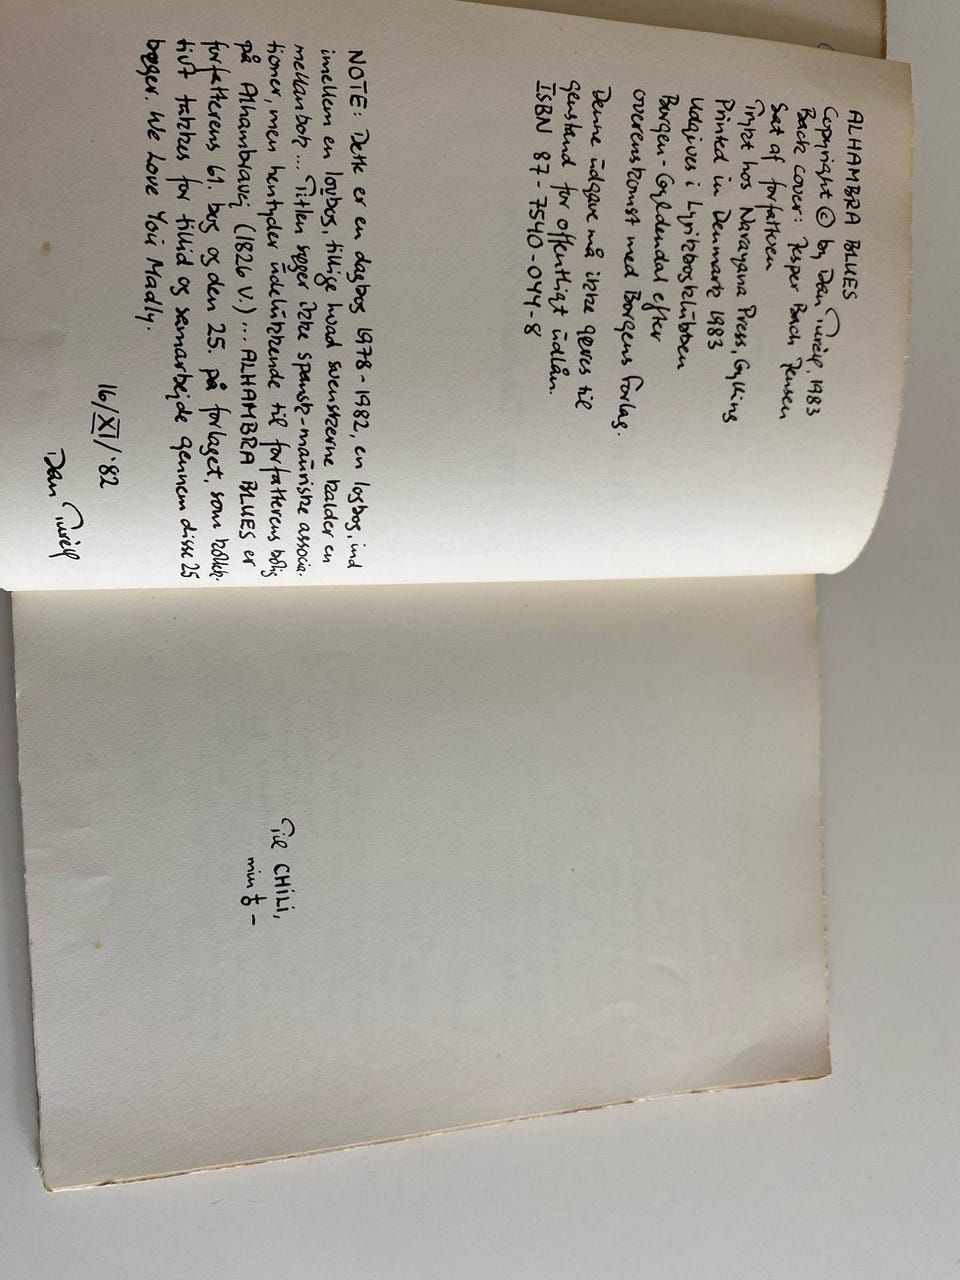 ALHAMBRA BLUES
Copyright © by Dan Turèll, 1983
Back cover: Jesper Bach Jensen
Sat af forfatteren
Trykt hos Narayana Press, Gylling
Printed in Denmark 1983
Udgives i Lyrikbogklubben
Borgen-Gyldendal efter
overenskomst med Borgens Forlag.
Denne udgave må ikke gøres til
genstand for offentligt udlån.
ISBN 87-7540-044-8
NOTE: Dette er en dagbog 1978-1982, en logbog, ind
imellem en lovbog, tillige hvad svenskerne kalder en
mellanbok... Titlen søger ikke spansk-mauriske associa-
tioner, men hentyder udelukkende til forfatterens bolig
på Alhambravej (1826 V)... ALHAMBRA BLUES er
forfatterens 61. bog og den 25. på forlaget, som kollek-
tivt takkes for tillid og samarbejde gennem disse 25
bøger. We Love You Madly.
16/XI/'82
Dan Turèll
Til CHILI,
min